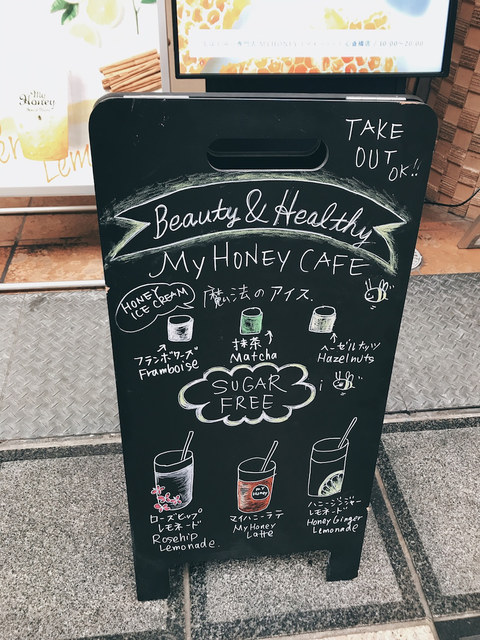 My
Honey
Lem
10:00~20:00
TAKE
OUT
OK!!
Beauty & Healthy
MY HONEY CAFE
HONEY
ICE CREAM
魔法のアイス.
フランボワーズ
Framboise
抹茶
Matcha
ヘーゼルナッツ
Hazelnuts
SUGAR
FREE
ローズヒップ
レモネード
Rosehip
Lemonade.
MY
Honey
マイハニーラテ
My Honey
Latte
ハニージンジャー
レモネード
Honey Ginger
Lemonade